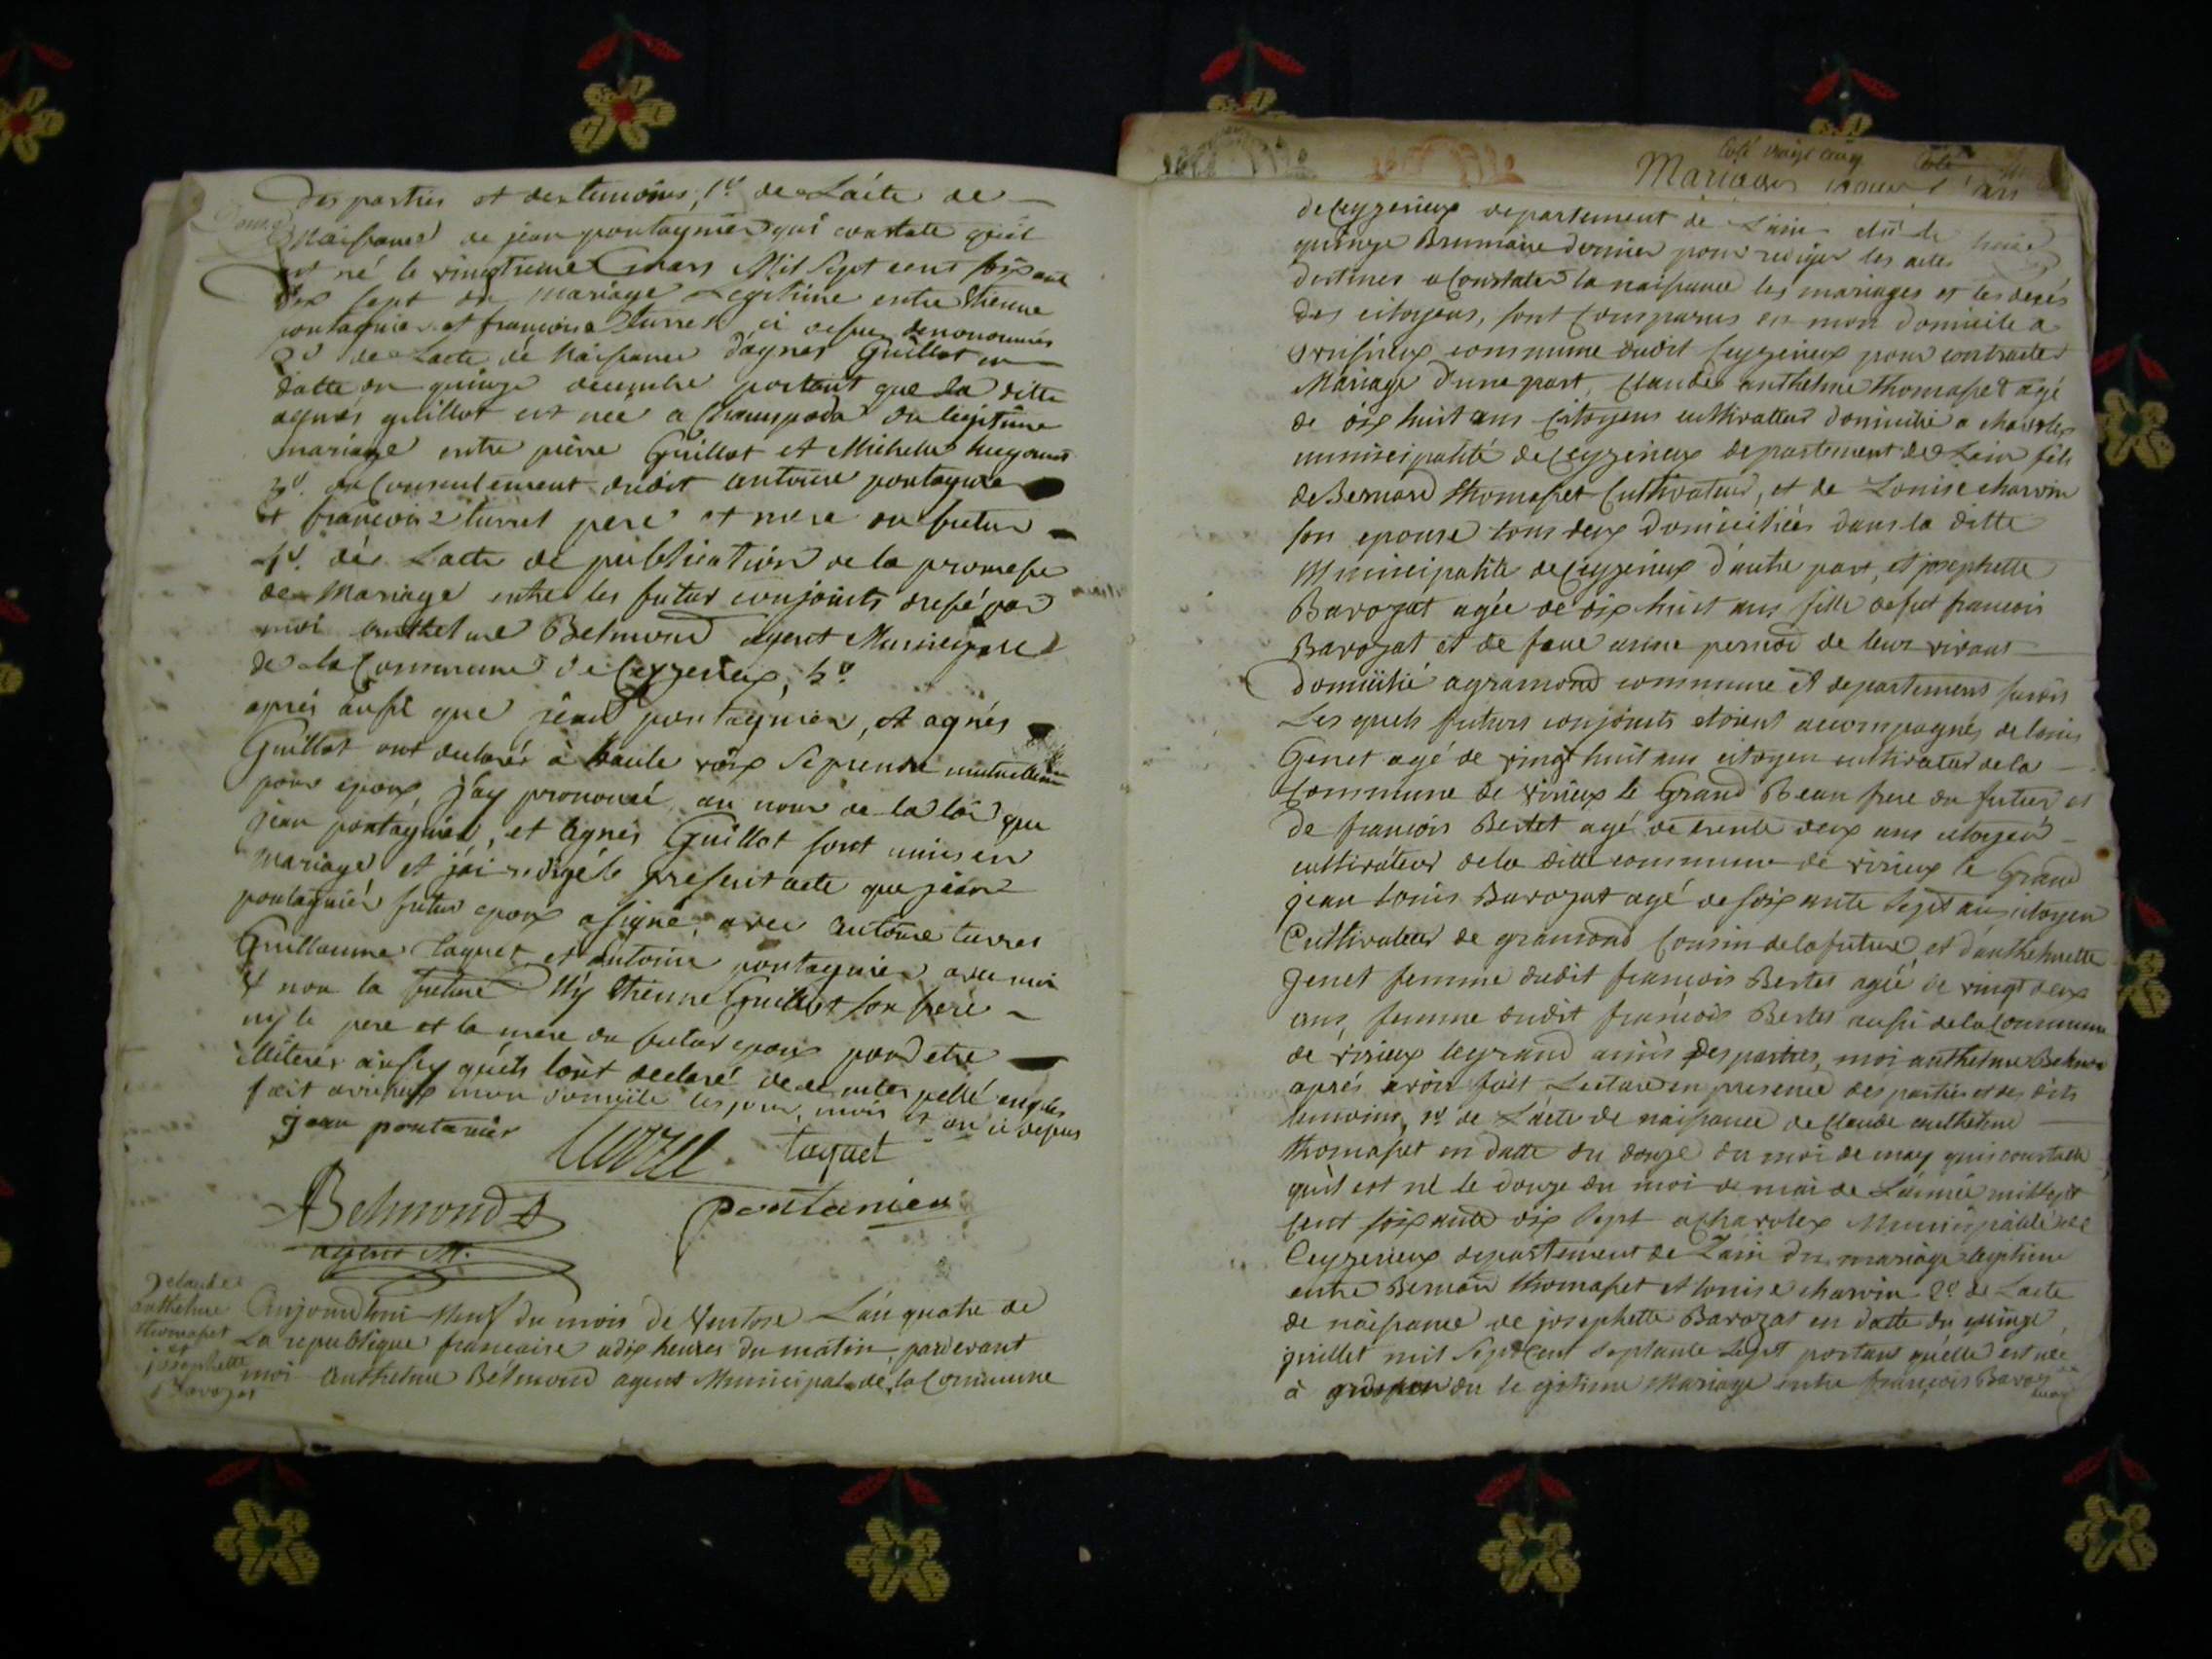 des parties et des temoins, 1º de Lacte de
Naissance de jean pontagnier qui constate quil
est né le vingtieme mars Mil Sept cent soixante
dix sept du mariage Legitime entre Etienne
pontagnier et francoise turrel ci dessus denommés
2º de Lacte de Naissance d'agnes Guillot en
datte du quinze decembre portant que la ditte
agnés guillot est neé a Champada du legitime
mariage entre piérre Guillot et Michelle
3º. du Consentement dudit antoine pontagnier
et francoise turrel pere et mere du futur
4º. dés Lacte de publication de la promesse
de Mariage entre les futur conjoints dressé par
moi anthelme Belmond agent Municipale
de la Commune de Ceyzerieux, 5º
aprés aussi que jean pontagnier, et agnés
Guillot ont declarés à haute voix Se prendre mutuellement
pour epoux, j'ay prononcé au nom de la loi que
jean pontagnier, et Agnés Guillot sont unis en
mariage et j'ai redigé le present acte que jéan
pontagniér futur epoux a signé, avec antoine turrel
Guillaume taquet et antoine pontagnier avec moi
et non la future Ny Etienne Guillot son frere
ny le pere et la mere du futur epoux pour etre
illiterés ainsy quéls lont declaré de ce interpellé enquis
fait a mon domicile les jour, mois et an ci dessus
jean pontanier turrel taquet
Belmond pontanier
agent M.
Claude
anthelme
thomasset
et
josephette
Barozat
Aujourdhui Neuf du mois de Ventose Lan quatre de
La republique francaise a dix heures du matin, pardevant
moi Anthelme Bélmond agent Municipal de la Commune
Coté vingt cinq
Mariages
de Ceyzerieux departement de Lain elu le
quinze Brumaire dernier pour rediger les actes
destines a Constater la naissance les mariages et les decés
des citoyens, sont Comparus en mon domicile a
commune dudit Ceyzerieux pour contracter
Mariage d'une part, Claude anthelme thomasset agé
de dix huit ans Citoyens cultivateur domicilié a charolex
municipalité de Ceyzerieux departement de Lain fils
de Bernard thomasset Cultivateur, et de Louise charvin
son epouse tous deux domiciliées dans la ditte
Municipalité de Ceyzerieux d'autre part, et josephette
Barozat agée de dix huit ans fille defut francois
Barozat et de feue anne pernod de leur vivant
Domicilié a gramond commune et departement susdit
Les quels futurs conjoints etoient accompagnés de louis
Genet agé de vingt huit ans citoyen cultivateur de la
Commune de virieux le Grand Beau frere du futur et
de francois Bertet agé de trente deux ans citoyen
cultivateur de la ditte commune de virieux le Grand
jean louis Barozat agé de soixante Sept ans citoyen
Cultivateur de gramond Cousin de la future, et d'anthelmette
Genet femme dudit francois Bertet agéé de vingt deux
ans, femme dudit francois Bertet aussi de la Commune
de virieux legrand amis des parties, moi anthelme Belmond
aprés avoir fait Lecture en presence des parties et des dits
temoins, 1º de Lácte de naissance de Claude anthelme
thomasset en datte du douze du moi de may qui constate
quil est né le douze du moi de mai de Lannée mil sept
cent soixante dix Sept a charolex Municipalité de
Ceyzerieux departement de Lain du mariage legitime
entre Bernard thomasset et louise charvin 2º de Lacte
de naissance de josephette Barozat en datte du quinze
juillet mil Sept Cent Septante Sept portant quélle est née
à du legitime Mariage entre francois Barozat